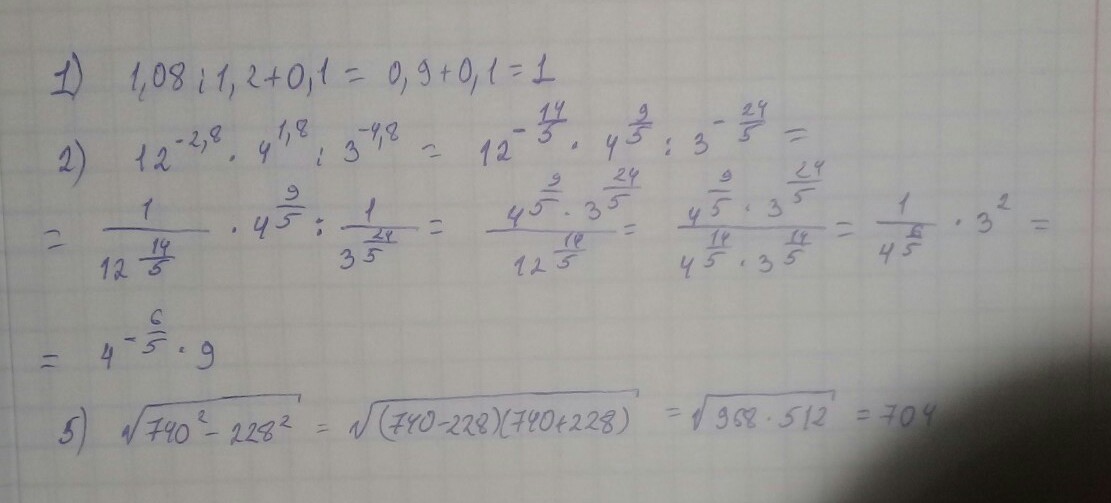 1) 1,08 : 1,2 + 0,1 = 0,9 + 0,1 = 1
2) 12^{-2,8} · 4^{1,8} : 3^{-4,8} = 12^{-\frac{14}{5}} · 4^{\frac{9}{5}} : 3^{-\frac{24}{5}} =
= \frac{1}{12^{\frac{14}{5}}} · 4^{\frac{9}{5}} : \frac{1}{3^{\frac{24}{5}}} = \frac{4^{\frac{9}{5}} · 3^{\frac{24}{5}}}{12^{\frac{14}{5}}} = \frac{4^{\frac{9}{5}} · 3^{\frac{24}{5}}}{4^{\frac{14}{5}} · 3^{\frac{14}{5}}} = \frac{1}{4^{\frac{6}{5}}} · 3^2 =
= 4^{-\frac{6}{5}} · 9
5) \sqrt{740^2 - 228^2} = \sqrt{(740-228)(740+228)} = \sqrt{968 · 512} = 704